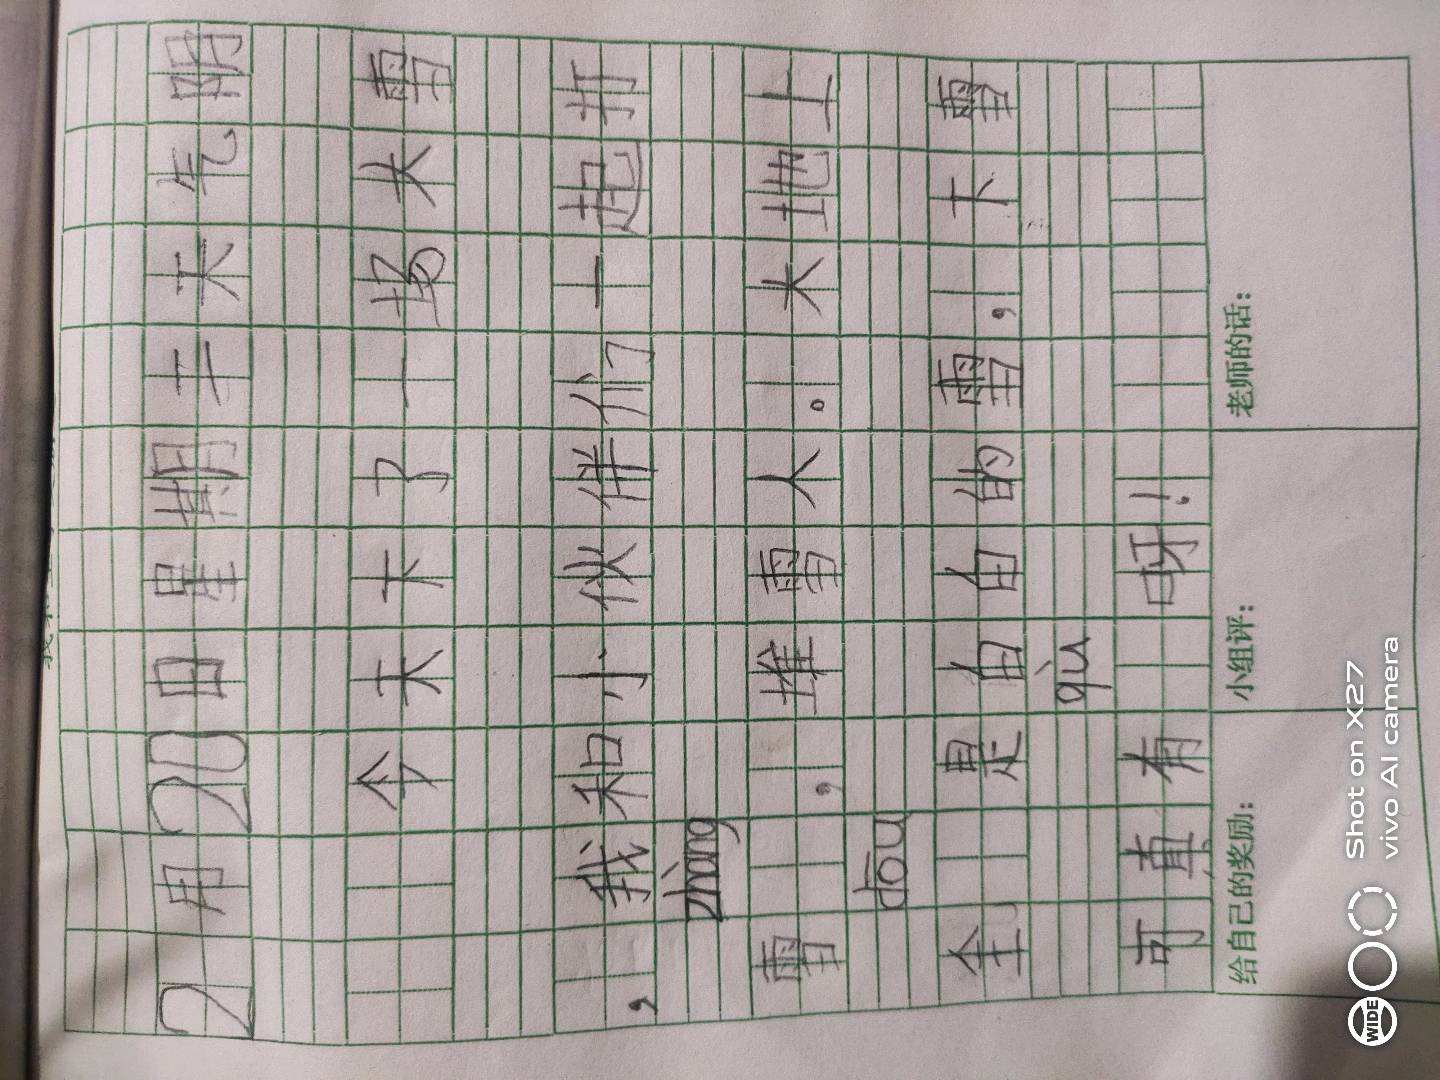 2月20日星期三天气阴
今天下了一场大雪
，我和小伙伴们一起打
zhàng
雪，堆雪人。大地上
dōu
全是白白的雪，下雪
qù
可真有呀！
给自己的奖励： 小组评： 老师的话：
WIDE
Shot on X27
vivo AI camera